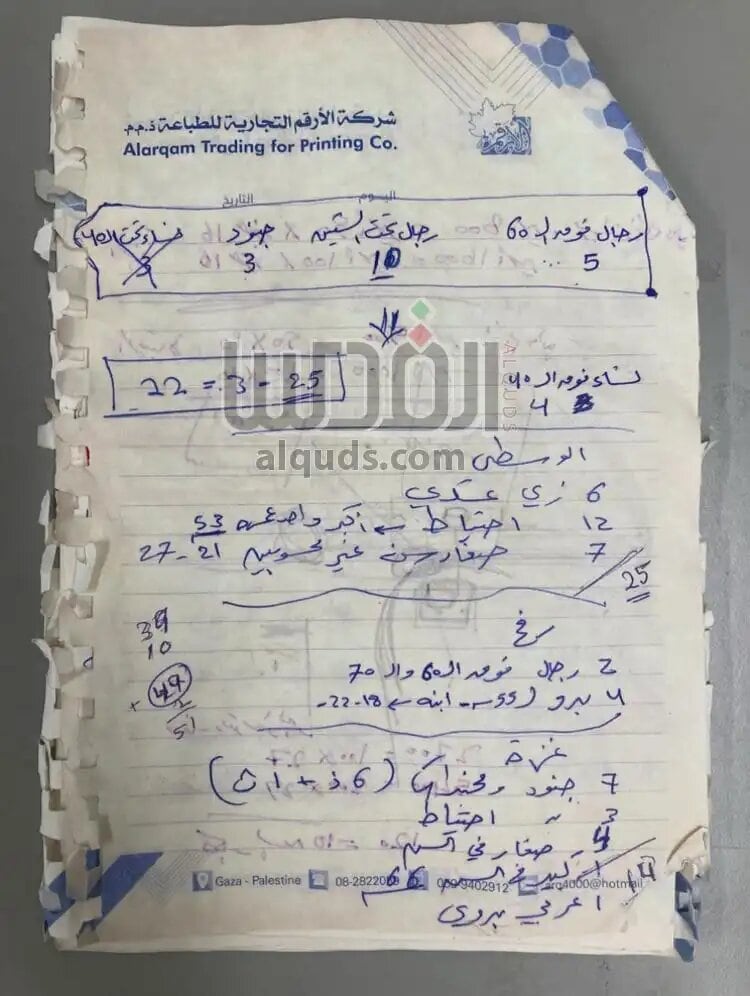 شركة الأرقم التجارية للطباعة ذ.م.م
Alarqam Trading for Printing Co.
اليوم التاريخ
رجال فوق الـ 60 رجال تحت الستين جنود نساء تحت الـ 40
5 ... 10 3 3
نساء فوق الـ 40
4
25 - 3 = 22
القدس
ALQUDS
alquds.com
الوسطى
6 زي عسكري
12 احتياط ← أكبر واحد عمره 53
7 صغار سن غير محسوبين 21 - 27
25
رفح
2 رجال فوق الـ 60 والـ 70
4 بدو (55 سـ - ابنه ← 18 - 22 -
39
10
49
+ 2
51
غزة
7 جنود ومجندات (6 ذ + 1 ث)
3 " احتياط
4 صغار في السن
1 كبير في السن 66
1 عربي بدوي
14
Gaza - Palestine 08-2822 059-9402912 arq4000@hotmail